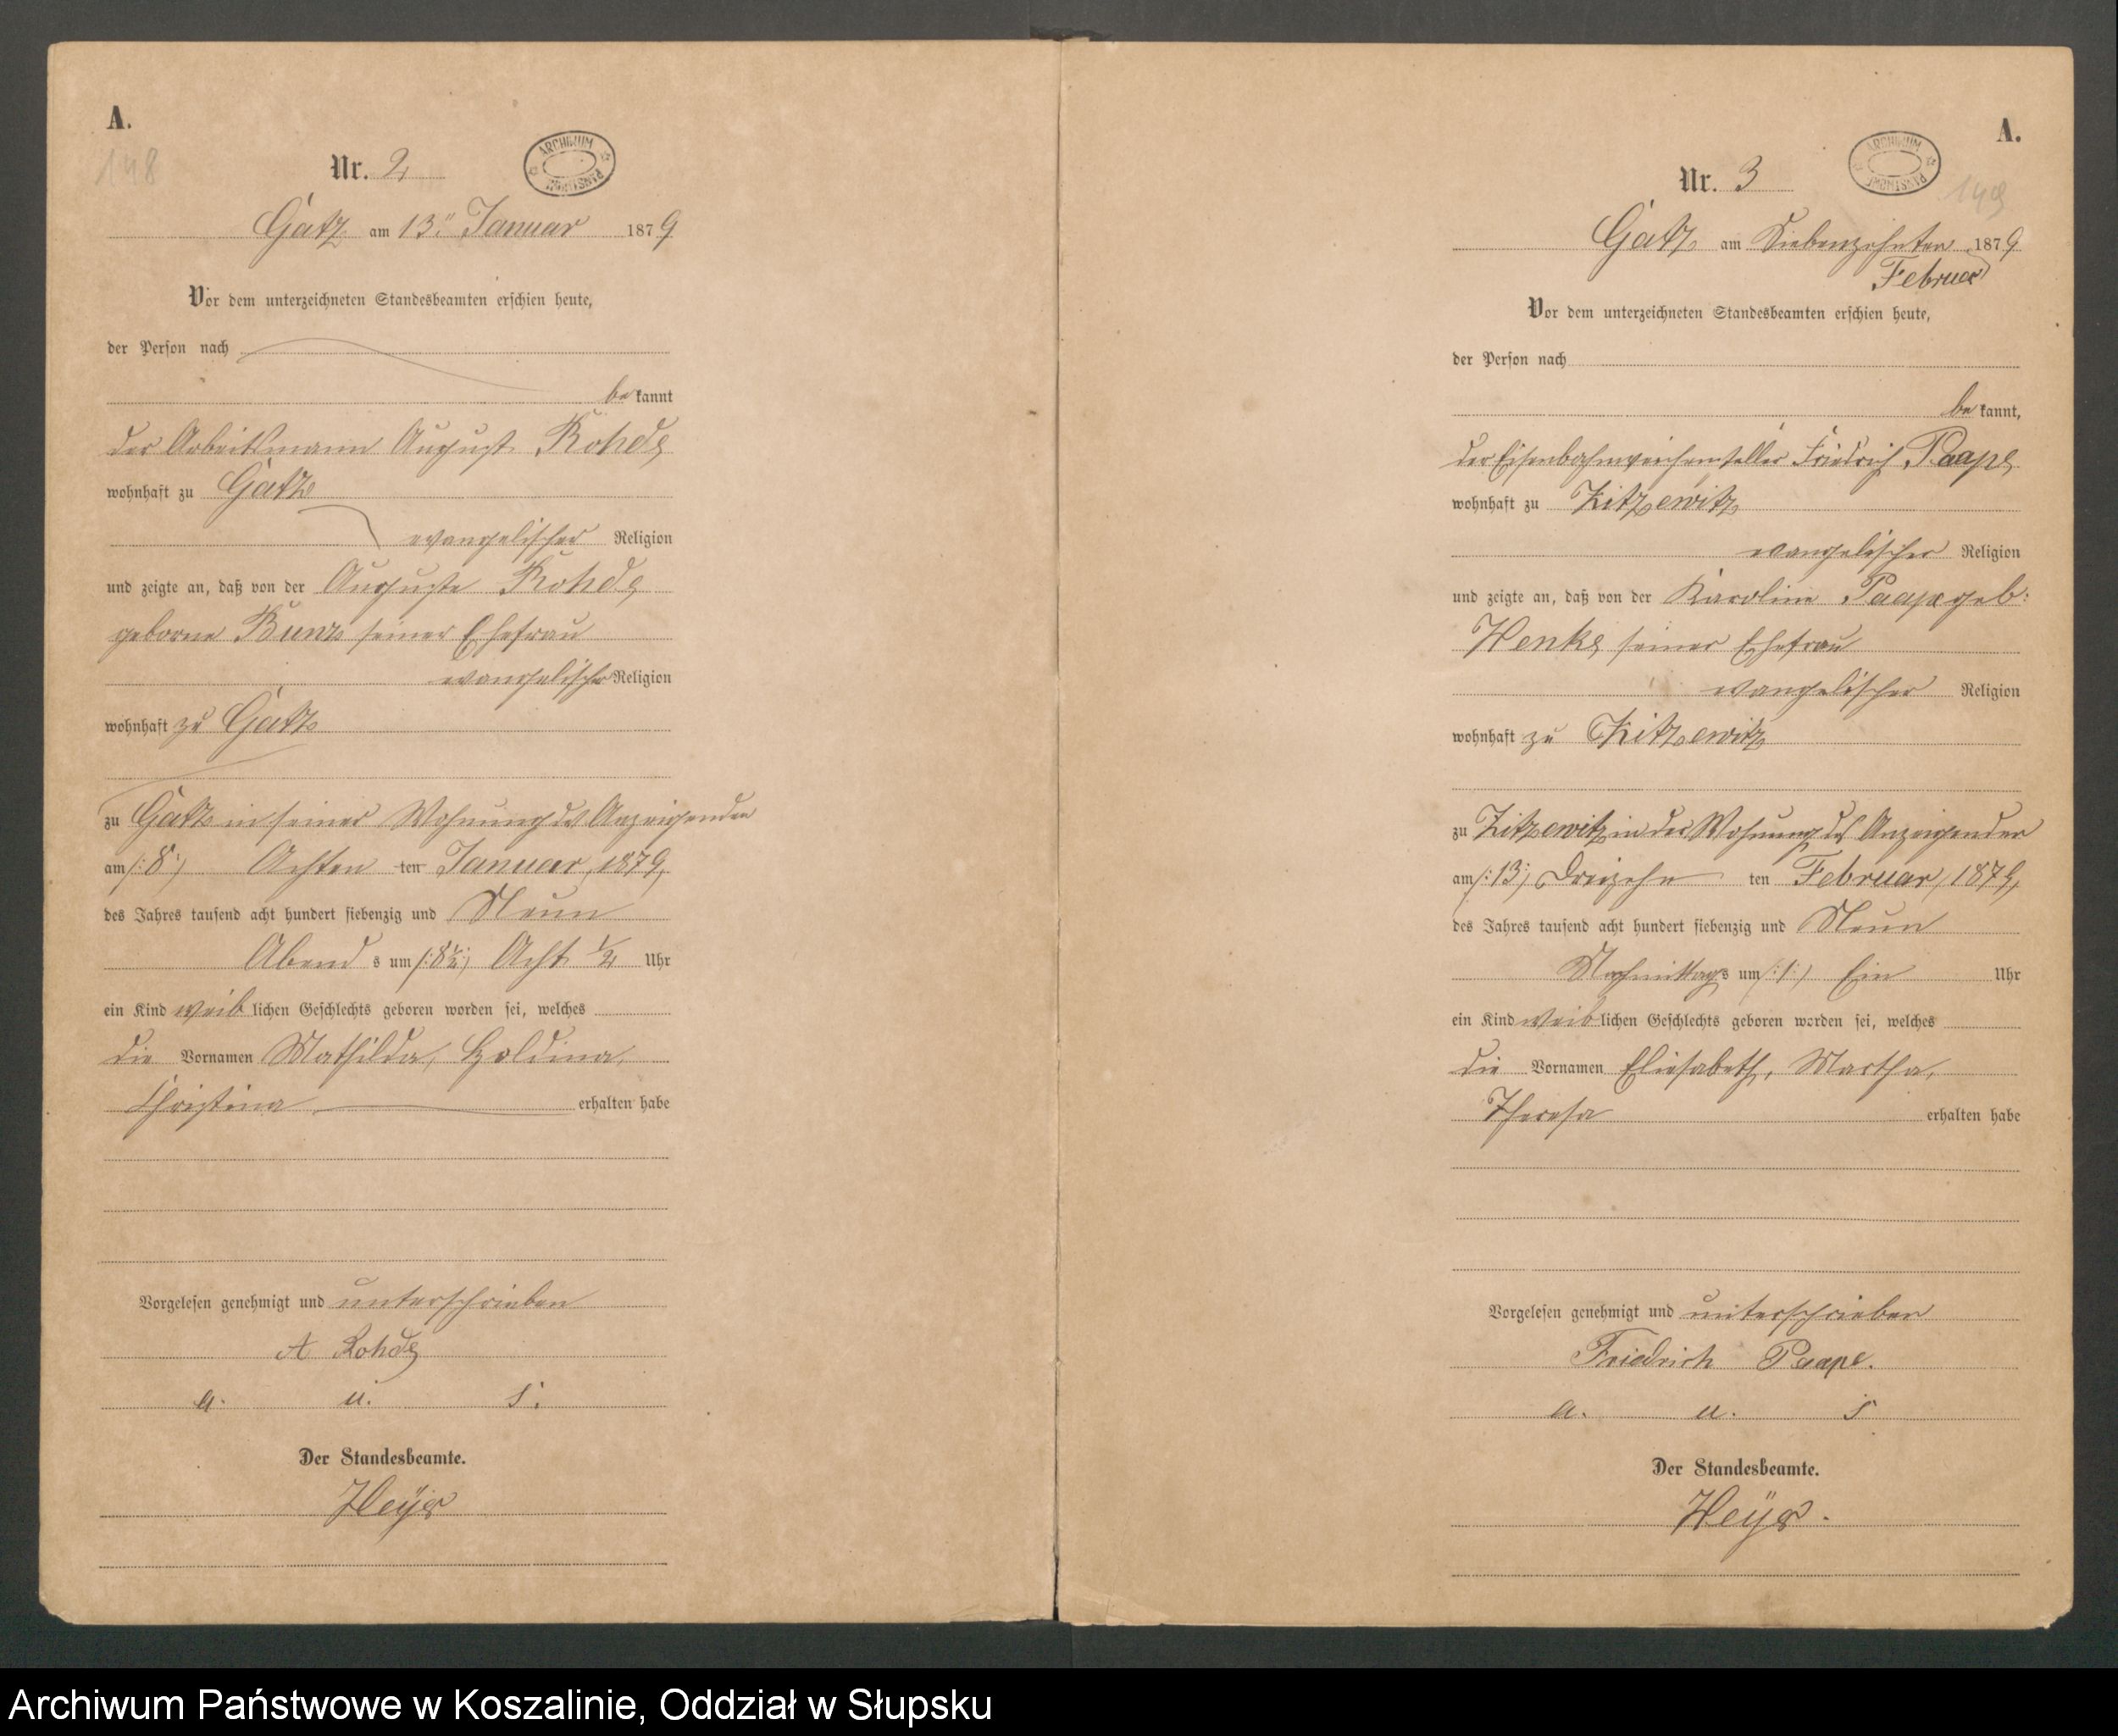 A.
148
Nr. 2
ARCHIWUM PAŃSTWOWE
Gatz am 13ten Januar 1879
Vor dem unterzeichneten Standesbeamten erschien heute,
der Person nach
bekannt
der Arbeitsmann August Rohde
wohnhaft zu Gatz
evangelischer Religion
und zeigte an, daß von der Auguste Rohde
geborne Bunz seiner Ehefrau
evangelischer Religion
wohnhaft zu Gatz
zu Gatz in seiner Wohnung des Anzeigenden
am /:8:/ Achten ten Januar, 1879,
des Jahres tausend acht hundert siebenzig und Neun
Abends um /:8½:/ Acht ½ Uhr
ein Kind weiblichen Geschlechts geboren worden sei, welches
die Vornamen Mathilda, Holdina,
Christina erhalten habe
Vorgelesen genehmigt und unterschrieben
A Rohde
a. u. s.
Der Standesbeamte.
Heyer
A.
149
Nr. 3
ARCHIWUM PAŃSTWOWE
Gatz am Siebenzehnten 1879
Februar
Vor dem unterzeichneten Standesbeamten erschien heute,
der Person nach
bekannt,
der Eisenbahnweichensteller Friedrich Paape
wohnhaft zu Zitzewitz
evangelischer Religion
und zeigte an, daß von der Karoline Paape geb:
Henke seiner Ehefrau
evangelischer Religion
wohnhaft zu Zitzewitz
zu Zitzewitz in der Wohnung des Anzeigenden
am /:13:/ Dreizehn ten Februar, 1879,
des Jahres tausend acht hundert siebenzig und Neun
Nachmittags um /:1:/ Ein Uhr
ein Kind weiblichen Geschlechts geboren worden sei, welches
die Vornamen Eliesabeth, Martha,
Theresa erhalten habe
Vorgelesen genehmigt und unterschrieben
Friedrich Paape.
a. u. s
Der Standesbeamte.
Heyer.
Archiwum Państwowe w Koszalinie, Oddział w Słupsku